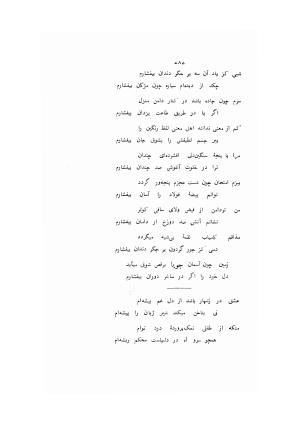 -۸۵-
شبی کز یاد آن مه بر جگر دندان بیفشارم
چکد از دیده‌ام سیاره چون مژگان بیفشارم
سرم چون جاده باشد در کنار دامن منزل
اگر پا در طریق طاعت یزدان بیفشارم
ز معنی ندانند اهل معنی لفظ رنگین را
چو جسم لطیفش را بشوق جان بیفشارم
مرا با پنجهٔ سنگین‌دلی افشرده‌ای چندان
ترا در خلوت آغوش صد چندان بیفشارم
بزم امتحان چون دست عجزم پنجه‌ور گردد
توانم بیضهٔ فولاد را آسان بیفشارم
من تردامن از فیض ولای ساقی کوثر
نشانم آتش صد دوزخ از دامان بیفشارم
مذاقم کامیاب نشهٔ می‌گردد
دمی کز جور گردون بر جگر دندان بیفشارم
زمین چون آسمان جویا برقص شوق میآید
دل خود را اگر در ساغر دوران بیفشارم
عشق در زنهار باشد از دل غم پیشه‌ام
نی بناخن میکند شیر ژیان را پیشه‌ام
منکه از طفلی نمک‌پروردهٔ درد توام
همچو سرو آه در دلهاست محکم ریشه‌ام